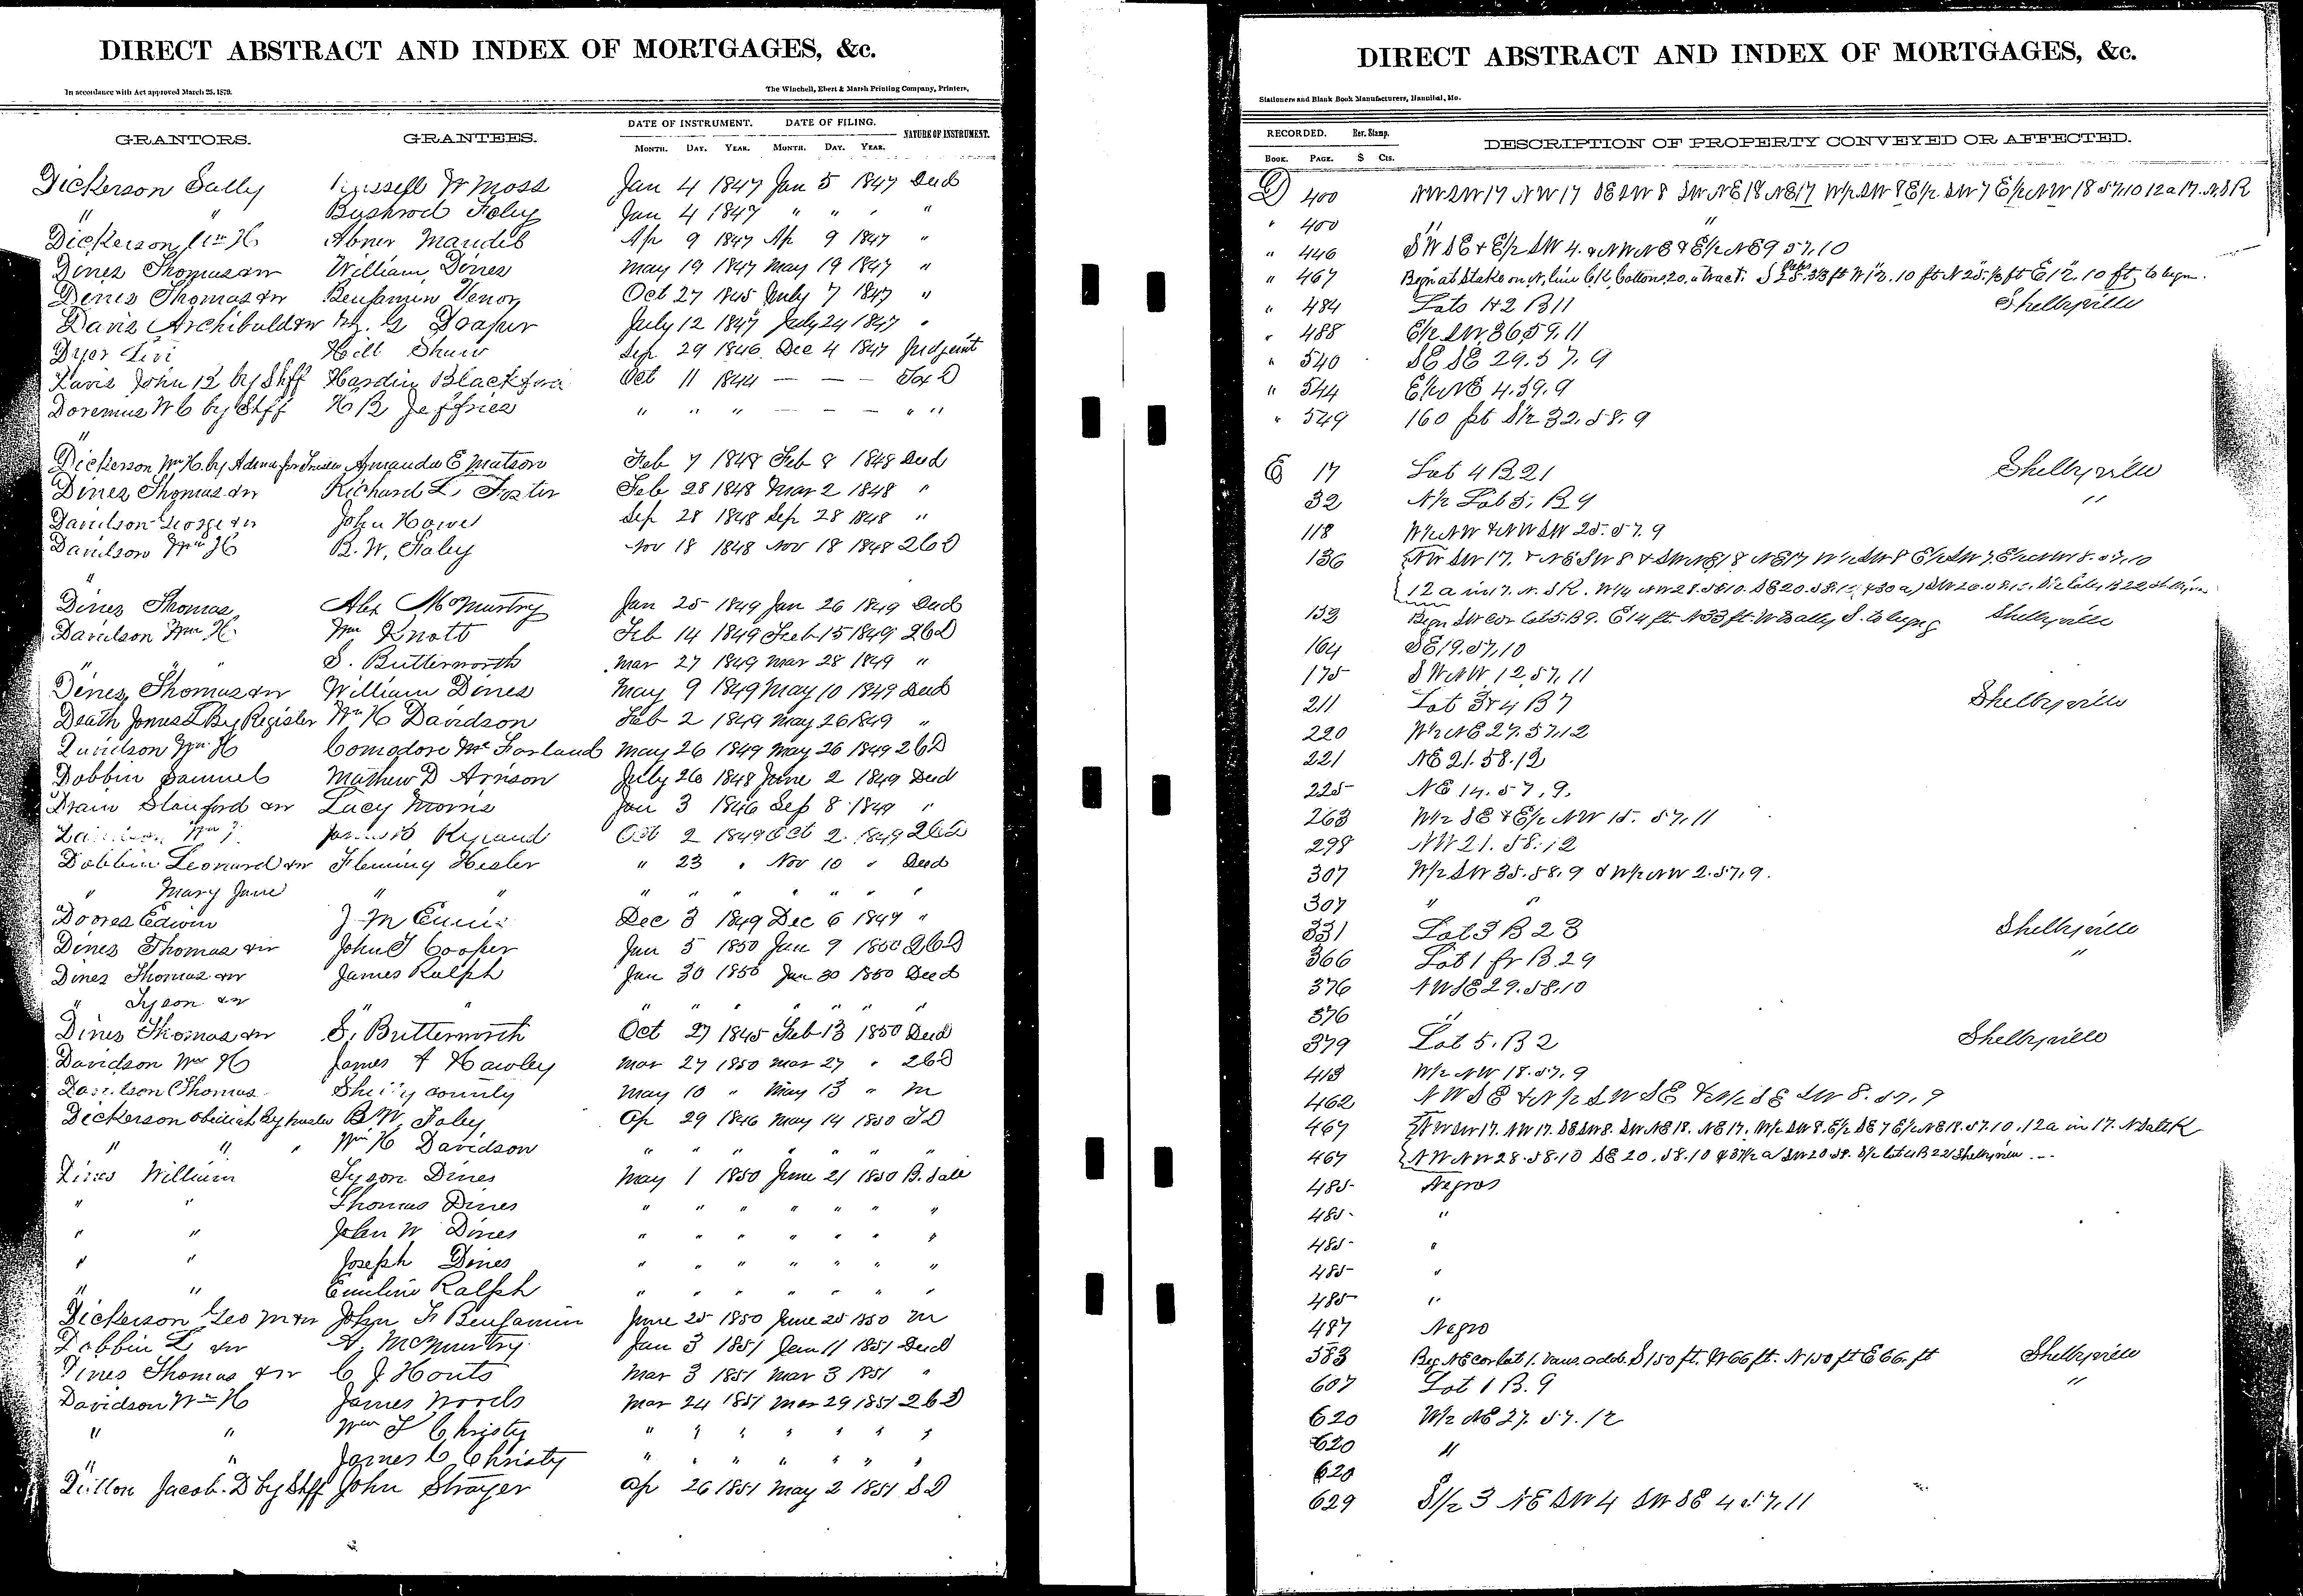 DIRECT ABSTRACT AND INDEX OF MORTGAGES, &c.
In accordance with Act approved March 25, 1879.
The Winchell, Ebert & Marsh Printing Company, Printers,
GRANTORS. GRANTEES. DATE OF INSTRUMENT. DATE OF FILING. NATURE OF INSTRUMENT.
MONTH. DAY. YEAR. MONTH. DAY. YEAR.
Dickerson Sally Russell W Moss Jan 4 1847 Jan 5 1847 Deed
" " Bushrod Foley Jan 4 1847 " " " "
Dickerson Wm H Abner Mandel Ap 9 1847 Ap 9 1847 "
Dines Thomas &w William Dines May 19 1847 May 19 1847 "
Dines Thomas &w Benjamin Oct 27 1845 July 7 1847 "
Davis Archibald &w G Draper July 12 1847 July 24 1847 "
Dyer Levi Hill Shaw Sep 29 1846 Dec 4 1847 Judgemt
Davis John R by Shff Hardin Blackford Oct 11 1844 — — — Tax D
Doremus W C by Shff H B Jeffries " " " — — — " "
"
Dickerson Wm H. by Adms for Trustee Amanda E Matson Feb 7 1848 Feb 8 1848 Deed
Dines Thomas &w Richard L. Foster Feb 28 1848 Mar 2 1848 "
Davidson George &w John Howe Sep 28 1848 Sep 28 1848 "
Davidson Wm H B. W. Foley Nov 18 1848 Nov 18 1848 2 C D
"
Dines Thomas Alex McMurtry Jan 25 1849 Jan 26 1849 Deed
Davidson Wm H Wm Knott Feb 14 1849 Feb 15 1849 2 C D
" " " S. Butterworth Mar 27 1849 Mar 28 1849 "
Dines, Thomas &w William Dines May 9 1849 May 10 1849 Deed
Death James L By Register Wm H Davidson Feb 2 1849 May 26 1849 "
Davidson Wm H Comodore McFarland May 26 1849 May 26 1849 2 C D
Dobbin Samuel Mathew D Arnson July 26 1848 June 2 1849 Deed
Drain Stanford &w Lucy Morris Jan 3 1846 Sep 8 1849 "
Wm Oct 2 1849 Oct 2. 1849 2 C D
Dobbin Leonard &w Fleming Hesler " 23 " Nov 10 " Deed
" Mary Jane " " " " " " " " "
Doores Edwin J M Dec 3 1849 Dec 6 1849 "
Dines Thomas &w John T Cooper Jan 5 1850 Jan 9 1850 2 C D
Dines Thomas &w James Ralph Jan 30 1850 Jan 30 1850 Deed
" Tyson &w " " " " " " " " "
Dines Thomas &w S. Butterworth Oct 27 1845 Feb 13 1850 Deed
Davidson Wm H James A Hawley Mar 27 1850 Mar 27 " 2 C D
Davidson Thomas Shelby county May 10 " May 13 " M
Dickerson Obediah by trustee B W. Foley Ap 29 1846 May 14 1850 T D
" " " Wm H Davidson " " " " " " "
Dines William Tyson Dines May 1 1850 June 21 1850 B. Sale
" " Thomas Dines " " " " " " "
" " John W Dines " " " " " " "
" " Joseph Dines " " " " " " "
" " Emiline Ralph " " " " " " "
Dickerson Geo M &w John F Benjamin June 25 1850 June 25 1850 M
Dobbin L &w A. McMurtry Jan 3 1851 Jan 11 1851 Deed
Dines Thomas &w C J Houts Mar 3 1851 Mar 3 1851 "
Davidson Wm H James Woods Mar 24 1851 Mar 29 1851 2 C D
" " Wm T Christy " " " " " " "
" " James C Christy " " " " " " "
Dillon Jacob. D by Shff John Strayer Ap 26 1851 May 2 1851 S D
DIRECT ABSTRACT AND INDEX OF MORTGAGES, &c.
Stationers and Blank Book Manufacturers, Hannibal, Mo.
RECORDED. Rev. Stamp. DESCRIPTION OF PROPERTY CONVEYED OR AFFECTED.
BOOK. PAGE. $ Cts.
D 400 NW SW 17 NW 17 SE SW 8 SW NE 18 NE 17 W½ SW 8 E½ SW 7 E½ NW 18 57.10 12 a 17. N S R
" 400 "
" 446 SW SE & E½ SW 4. & NW NE & E½ NE 9 57.10
" 467 Begn at Stake on N, line Cottons 20. a tract. to begn.
" 484 Lots 1 & 2 B 11 Shelbyville
" 488 E½ SW 36.59.11
" 540 SE SE 29.57.9
" 544 E½ NE 4.59.9
" 549 160 pt S½ 32.58.9
E 17 Lot 4 B 21 Shelbyville
32 N½ Lot 5, B 9 "
118 W½ NW & NW SW 25.57.9
136 NW SW 17. & NE SW 8 & SW NE 18 NE 17 W½ SW 8 E½ SW 7 E½ NW 18.57.10
12 a in 17. N. S R.
153 Begn SW cor lot 5. B 9. E 14 ft. N 33 ft. W to alley S. to begng Shelbyville
164 SE 19.57.10
175 SW NW 12.57.11
211 Lot 3 & 4 B 7 Shelbyville
220 W½ NE 27.57.12
221 NE 21.58.12
225 NE 14.57.9.
263 W½ SE & E½ NW 15.57.11
298 NW 21.58.12
307 W½ SW 35.58.9 & W½ NW 2.57.9.
307 " "
331 Lot 3 B 23 Shelbyville
366 Lot 1 fr B 29 "
376 NW SE 29.58.10
376 "
379 Lot 5. B 2 Shelbyville
413 W½ NW 18.57.9
462 NW SE & N½ SW SE & N½ SE SW 8.57.9
467 NW SW 17. NW 17. SE SW 8. SW NE 18. NE 17. W½ SW 8. E½ SE 7 E½ NE 18.57.10. 12 a in 17. N Salt R
467 NW NW 28.58.10 SE 20.58.10 & 37½ a SW 20 58. S½ lot 4 B 22 Shelbyville
485 Negros
485 "
485 "
485 "
485 "
487 Negro
583 Beg. NE cor lot 1. Vans. add. S 150 ft. W 66 ft. N 150 ft E 66. ft Shelbyville
607 Lot 1 B. 9 "
620 W½ NE 27.57.12
620 "
620
629 S½ 3 NE SW 4 SW SE 4 57.11